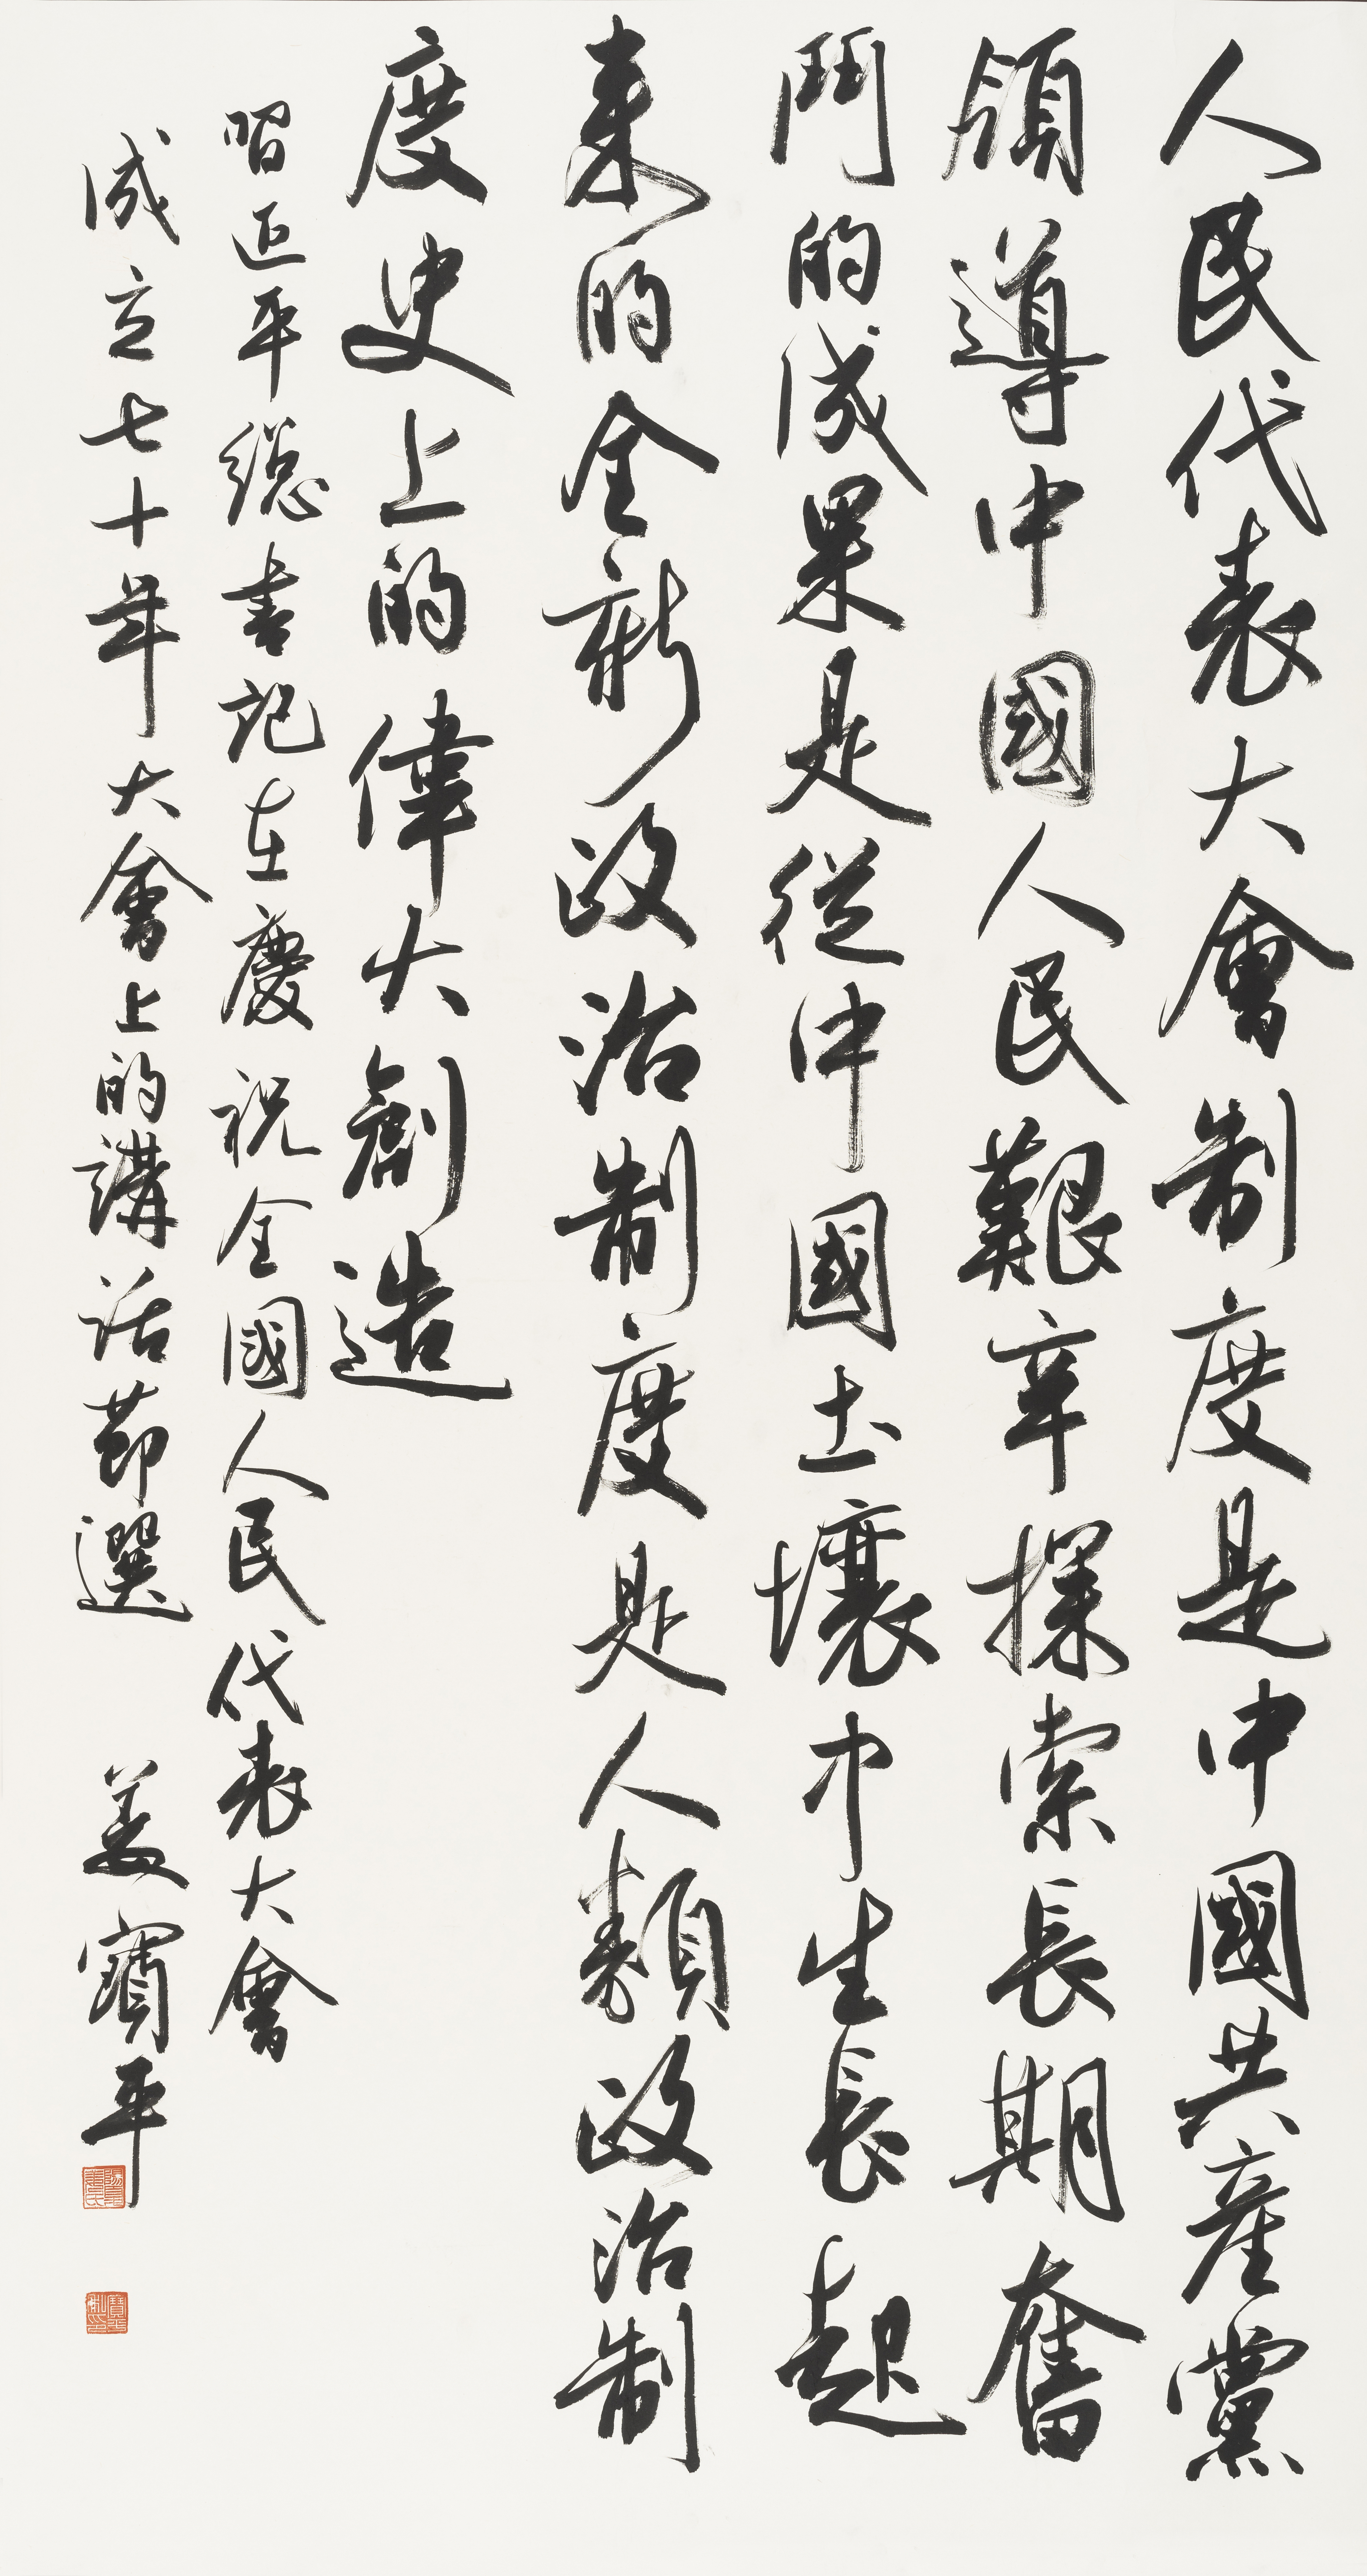 人民代表大會制度是中國共產黨
領導中國人民艱辛探索長期奮
鬥的成果是從中國土壤中生長起
來的全新政治制度是人類政治制
度史上的偉大創造
習近平總書記在慶祝全國人民代表大會
成立七十年大會上的講話節選
姜寶平